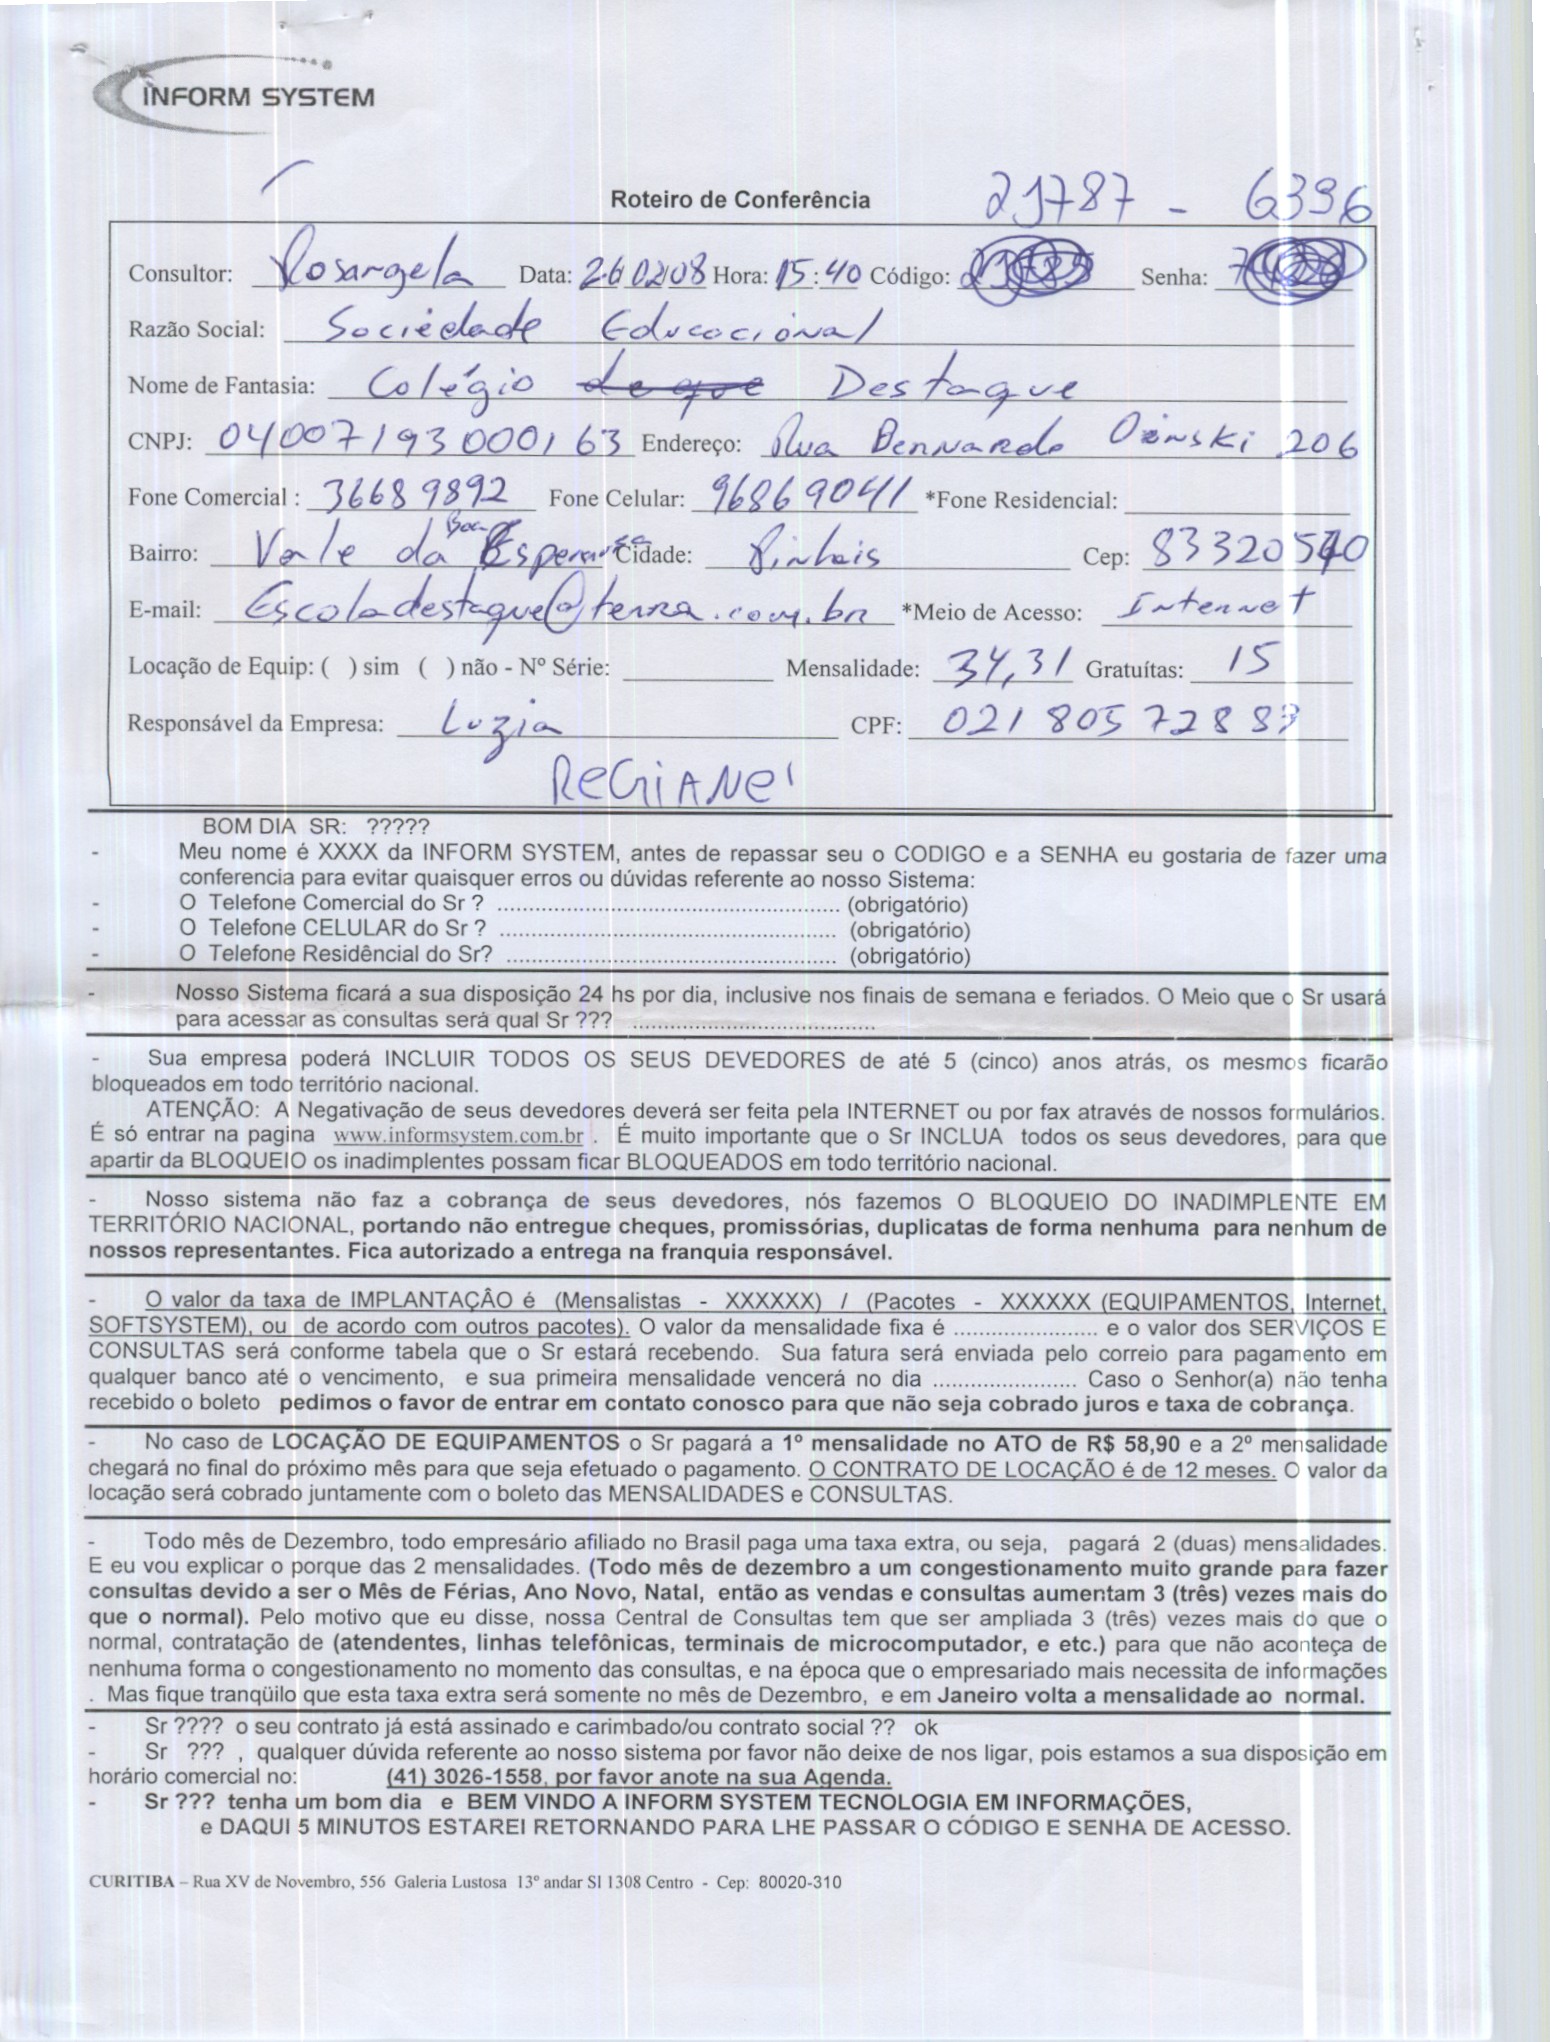 INFORM SYSTEM
Roteiro de Conferência 21787 - 6396
Consultor: Rosangela Data: 26/02/08 Hora: 15:40 Código: Senha:
Razão Social: Sociedade Educacional
Nome de Fantasia: Colégio Destaque
CNPJ: 04007193000163 Endereço: Rua Bernardo 206
Fone Comercial : 36689892 Fone Celular: 96869041 *Fone Residencial:
Bairro: Vale da Boa Esperança Cidade: Pinhais Cep:
E-mail: Escoladestaque@terra.com.br *Meio de Acesso: Internet
Locação de Equip: ( ) sim ( ) não - Nº Série: Mensalidade: 34,31 Gratuítas: 15
Responsável da Empresa: Luzia CPF: 021 805 728 83
REGIANE
BOM DIA SR: ?????
- Meu nome é XXXX da INFORM SYSTEM, antes de repassar seu o CODIGO e a SENHA eu gostaria de fazer uma
conferencia para evitar quaisquer erros ou dúvidas referente ao nosso Sistema:
- O Telefone Comercial do Sr ? .................................................... (obrigatório)
- O Telefone CELULAR do Sr ? .................................................... (obrigatório)
- O Telefone Residêncial do Sr? .................................................... (obrigatório)
- Nosso Sistema ficará a sua disposição 24 hs por dia, inclusive nos finais de semana e feriados. O Meio que o Sr usará
para acessar as consultas será qual Sr ??? ......................................
- Sua empresa poderá INCLUIR TODOS OS SEUS DEVEDORES de até 5 (cinco) anos atrás, os mesmos ficarão
bloqueados em todo território nacional.
ATENÇÃO: A Negativação de seus devedores deverá ser feita pela INTERNET ou por fax através de nossos formulários.
É só entrar na pagina www.informsystem.com.br . É muito importante que o Sr INCLUA todos os seus devedores, para que
apartir da BLOQUEIO os inadimplentes possam ficar BLOQUEADOS em todo território nacional.
- Nosso sistema não faz a cobrança de seus devedores, nós fazemos O BLOQUEIO DO INADIMPLENTE EM
TERRITÓRIO NACIONAL, portando não entregue cheques, promissórias, duplicatas de forma nenhuma para nenhum de
nossos representantes. Fica autorizado a entrega na franquia responsável.
- O valor da taxa de IMPLANTAÇÂO é (Mensalistas - XXXXXX) / (Pacotes - XXXXXX (EQUIPAMENTOS, Internet,
SOFTSYSTEM), ou de acordo com outros pacotes). O valor da mensalidade fixa é ....................... e o valor dos SERVIÇOS E
CONSULTAS será conforme tabela que o Sr estará recebendo. Sua fatura será enviada pelo correio para pagamento em
qualquer banco até o vencimento, e sua primeira mensalidade vencerá no dia ....................... Caso o Senhor(a) não tenha
recebido o boleto pedimos o favor de entrar em contato conosco para que não seja cobrado juros e taxa de cobrança.
- No caso de LOCAÇÃO DE EQUIPAMENTOS o Sr pagará a 1º mensalidade no ATO de R$ 58,90 e a 2º mensalidade
chegará no final do próximo mês para que seja efetuado o pagamento. O CONTRATO DE LOCAÇÃO é de 12 meses. O valor da
locação será cobrado juntamente com o boleto das MENSALIDADES e CONSULTAS.
- Todo mês de Dezembro, todo empresário afiliado no Brasil paga uma taxa extra, ou seja, pagará 2 (duas) mensalidades.
E eu vou explicar o porque das 2 mensalidades. (Todo mês de dezembro a um congestionamento muito grande para fazer
consultas devido a ser o Mês de Férias, Ano Novo, Natal, então as vendas e consultas aumentam 3 (três) vezes mais do
que o normal). Pelo motivo que eu disse, nossa Central de Consultas tem que ser ampliada 3 (três) vezes mais do que o
normal, contratação de (atendentes, linhas telefônicas, terminais de microcomputador, e etc.) para que não aconteça de
nenhuma forma o congestionamento no momento das consultas, e na época que o empresariado mais necessita de informações
. Mas fique tranqüilo que esta taxa extra será somente no mês de Dezembro, e em Janeiro volta a mensalidade ao normal.
- Sr ???? o seu contrato já está assinado e carimbado/ou contrato social ?? ok
- Sr ??? , qualquer dúvida referente ao nosso sistema por favor não deixe de nos ligar, pois estamos a sua disposição em
horário comercial no: (41) 3026-1558, por favor anote na sua Agenda.
- Sr ??? tenha um bom dia e BEM VINDO A INFORM SYSTEM TECNOLOGIA EM INFORMAÇÕES,
e DAQUI 5 MINUTOS ESTAREI RETORNANDO PARA LHE PASSAR O CÓDIGO E SENHA DE ACESSO.
CURITIBA – Rua XV de Novembro, 556 Galeria Lustosa 13º andar Sl 1308 Centro - Cep: 80020-310